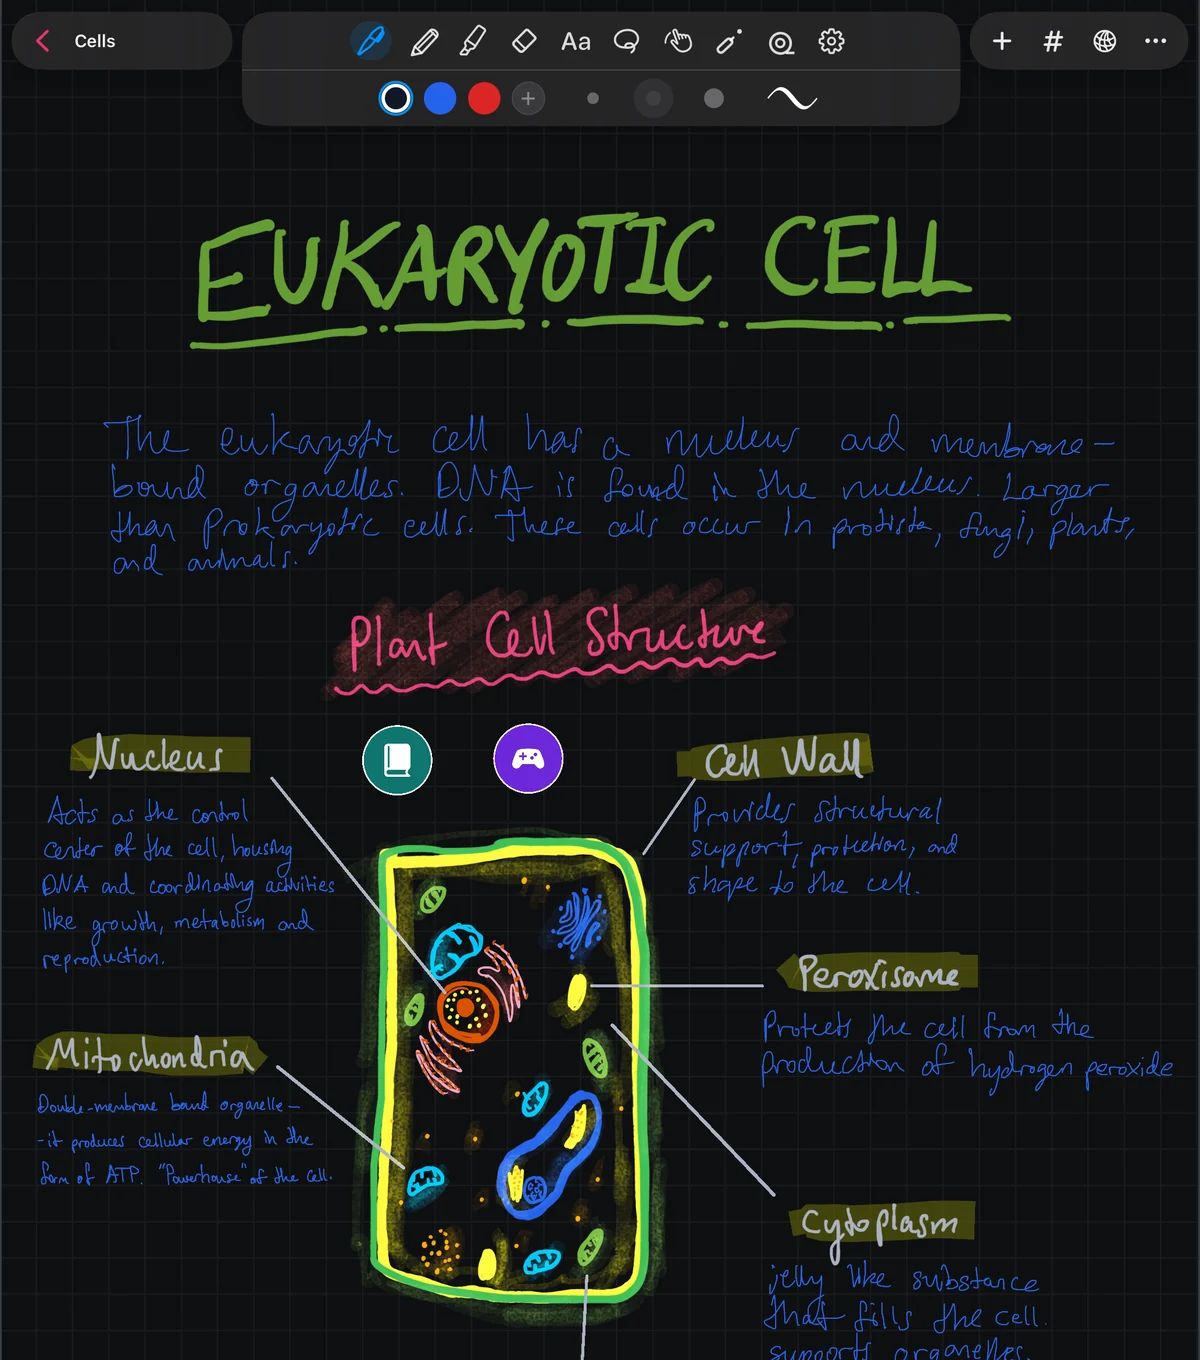 Cells
Aa
EUKARYOTIC CELL
The eukaryotic cell has a nucleus and membrane-
bound organelles. DNA is found in the nucleus. Larger
than Prokaryotic cells. These cells occur in protista, fungi, plants,
and animals.
Plant Cell Structure
Nucleus
Acts as the control
center of the cell, housing
DNA and coordinating activities
like growth, metabolism and
reproduction.
Cell Wall
Provides structural
support, protection, and
shape to the cell.
Peroxisome
Protects the cell from the
production of hydrogen peroxide
Mitochondria
Double-membrane bound organelle-
-it produces cellular energy in the
form of ATP. "Powerhouse" of the cell.
Cytoplasm
jelly like substance
that fills the cell.
supports organelles.